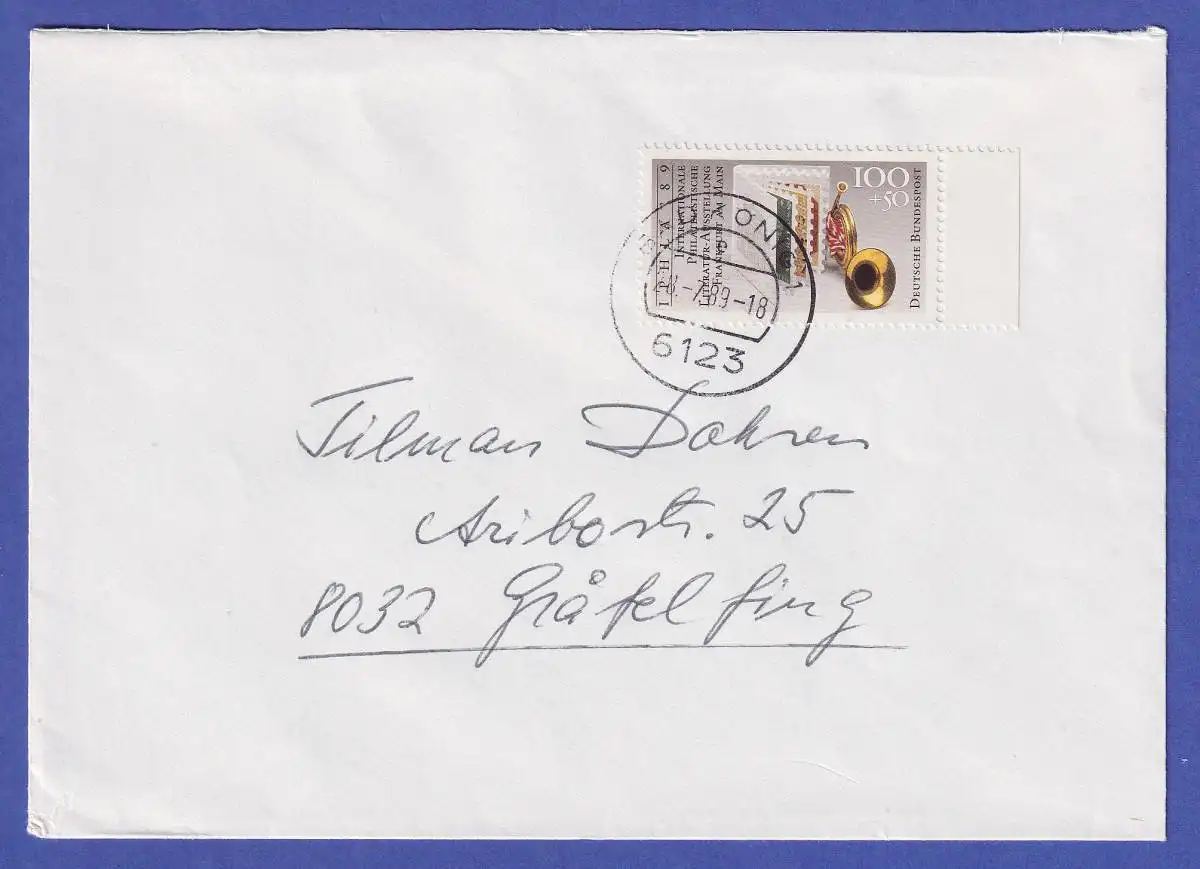 IPHLA 89
INTERNATIONALE
PHILATELISTISCHE
LITERATUR-AUSSTELLUNG
FRANKFURT AM MAIN
100
+50
DEUTSCHE BUNDESPOST
-7.89-18
6123
Tilman Dohren
Aribostr. 25
8032 Gräfelfing